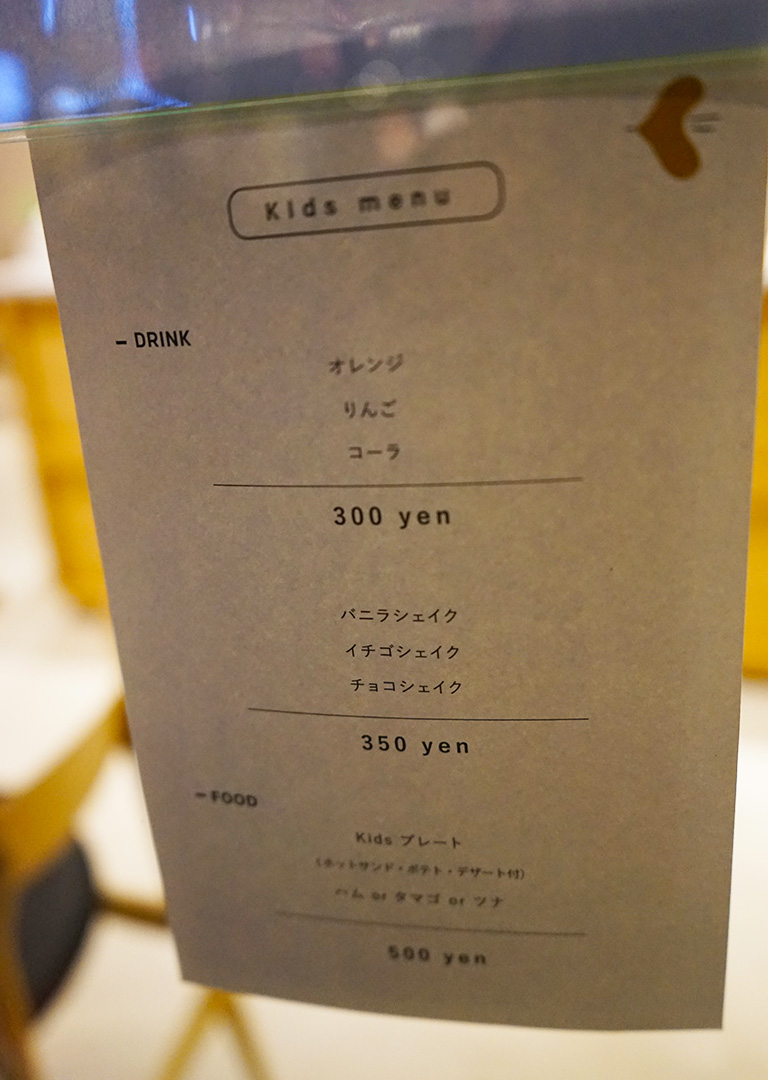 Kids menu
– DRINK
オレンジ
りんご
コーラ
300 yen
バニラシェイク
イチゴシェイク
チョコシェイク
350 yen
– FOOD
Kids プレート
(ホットサンド・ポテト・デザート付)
ハム or タマゴ or ツナ
500 yen